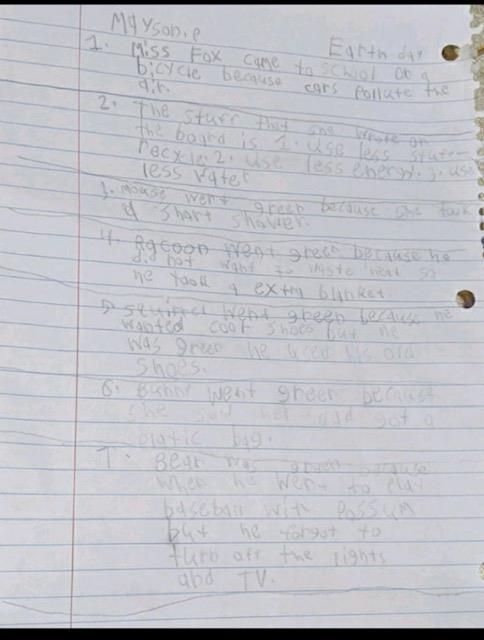 Maysonie
Earth day
1. Miss Fox came to school on a
bicycle because cars pollute the
air.
2. The stuff that she wrote on
the board is 1. use less stuff
recycle. 2. use less energy. 3. use
less water
3. mouse went green because she took
a short shower.
4. Racoon went green because he
did not want to waste heat so
he took a extra blanket.
5. squirrel went green because he
wanted cool shoes but he
was green he used his old
shoes.
6. Bunny went green because
she said her dad got a
plastic bag.
7. Bear was green because
when he went to play
baseball with Possum
but he forgot to
turn off the lights
and TV.